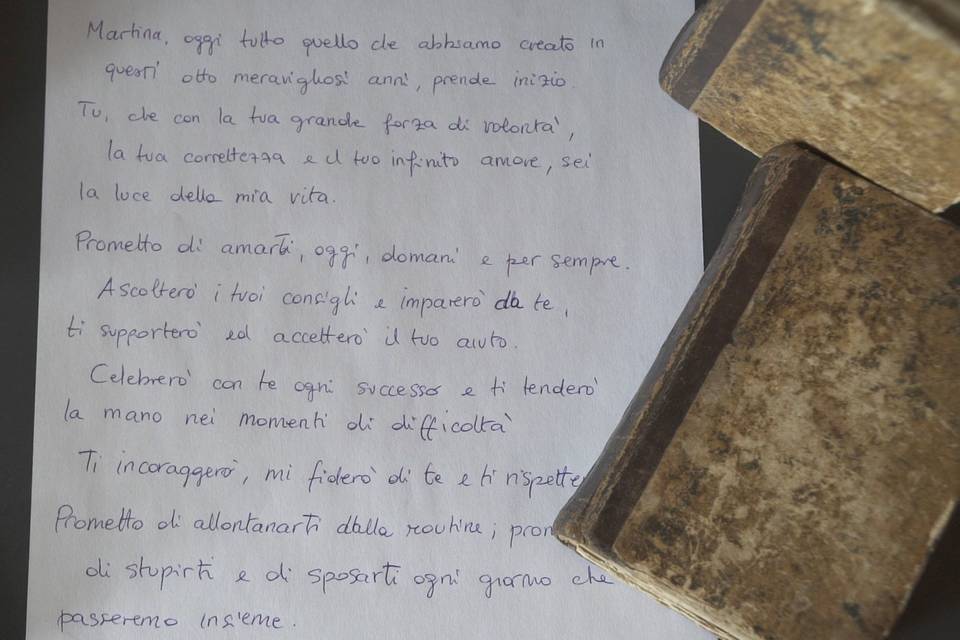 Martina, oggi tutto quello che abbiamo creato in
questi otto meravigliosi anni, prende inizio.
Tu, che con la tua grande forza di volontà,
la tua correttezza e il tuo infinito amore, sei
la luce della mia vita.
Prometto di amarti, oggi, domani e per sempre.
Ascolterò i tuoi consigli e imparerò da te,
ti supporterò ed accetterò il tuo aiuto.
Celebrerò con te ogni successo e ti tenderò
la mano nei momenti di difficoltà
Ti incoraggerò, mi fiderò di te e ti
Prometto di allontanarti dalla routine;
di stupirti e di sposarti ogni giorno che
passeremo insieme.